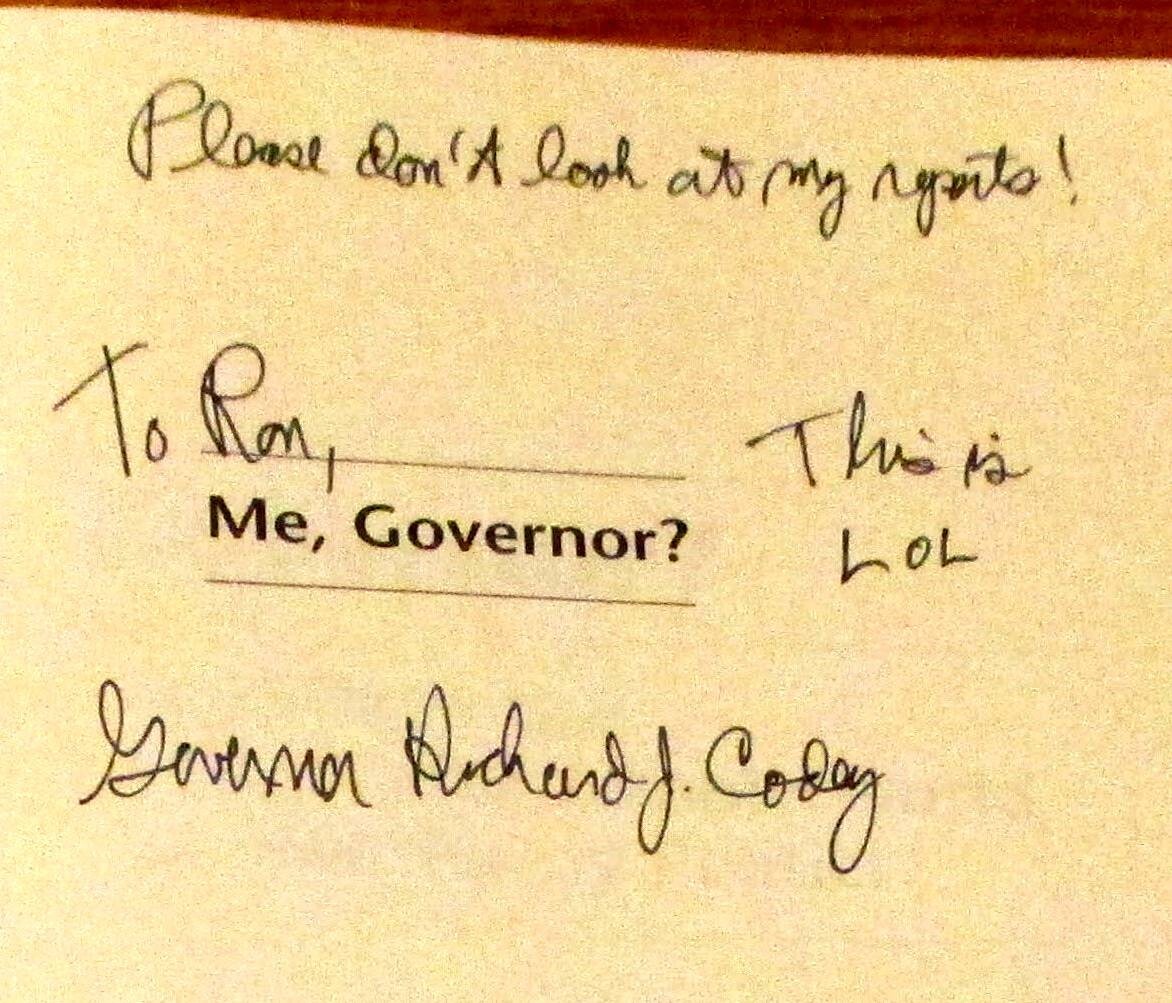 Please don't look at my reports!
To Ron,
This is
LOL
Me, Governor?
Governor Richard J. Codey